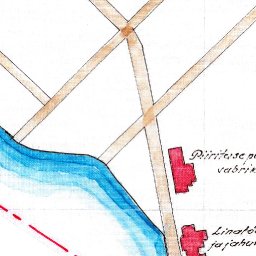 Piirituse
vabrik
Linatö
ja jahu